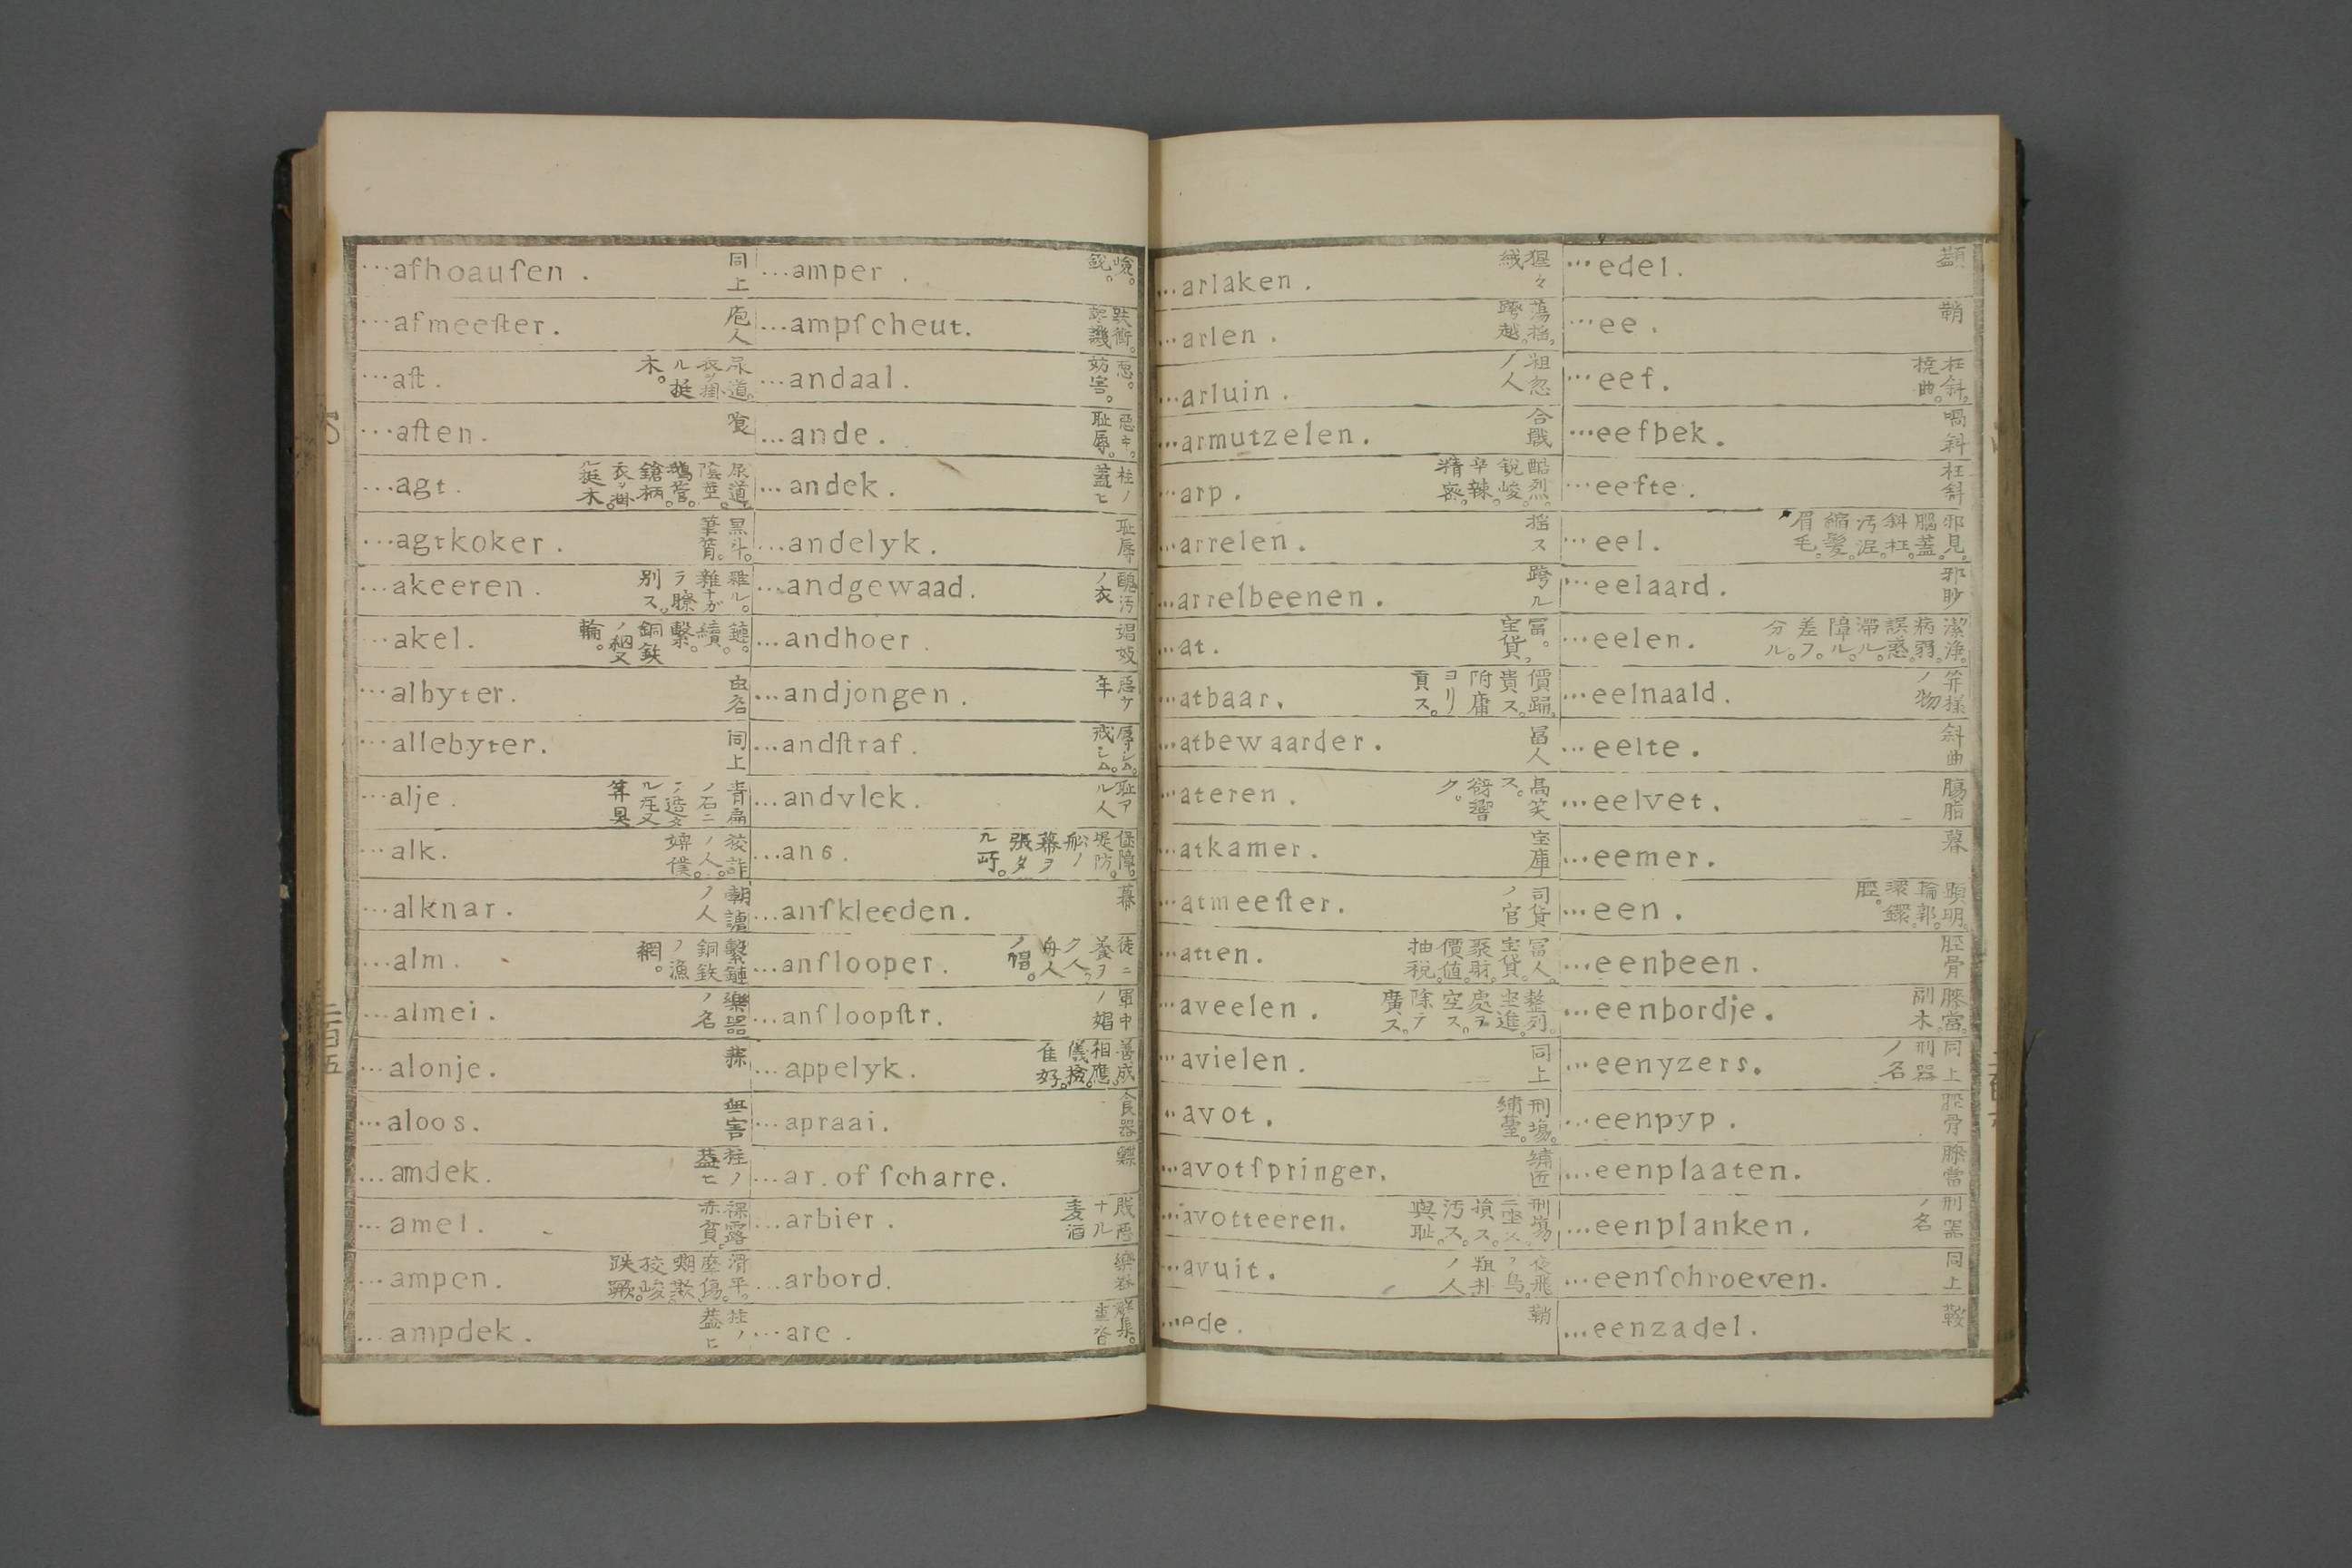 ...afhoauſen. 同上
...afmeeſter. 庖人
...aſt. 尿道。衣ヲ掛ル挺木。
...aften. 食
...agt. 尿道。陰莖。鵝管。鎗柄。衣ヲ掛ル挺木。
...agtkoker. 筆筩。
...akeeren. 雜ル。雜ナガラ瞭別ス。
...akel. 鏈。續。繫。銅鉄ノ細叉輪。
...albyter. 虫名
...allebyter. 同上
...alje. 青扁ノ石ニテ造タル瓦又算具
...alk. 狡詐ノ人。婢僕。
...alknar. ノ人
...alm. 繫鏈銅鉄ノ漁網。
...almei. 樂器ノ名
...alonje. 蒜
...aloos. 無害
...amdek. 柱ノ蓋ヒ
...amel. 裸露赤貧。
...ampen. 滑平。磨傷。嘲欺。狡峻。跌蹶。
...ampdek. 柱ノ蓋ヒ
...amper. 峻。銳。
...ampſcheut.
...andaal. 惡。妨害。
...ande. 惡キ。耻辱。
...andek. 柱ノ蓋ヒ
...andelyk. 耻辱
...andgewaad. 醜汚ノ衣
...andhoer. 娼妓
...andjongen. 惡少年
...andſtraf. 辱シム。戒シム。
...andvlek. 耻アル人
...ans. 保障。堤防。舩ノ幕ヲ張タル所。
...anſkleeden. 幕
...anſlooper. 徒ニ養ヲク人。舟人ノ帽。
...anſloopſtr. 軍中ノ娼
...appelyk. 善成相應。儀検。佳好。
...apraai. 食器
...ar. of ſcharre. 鰈
...arbier. 賎惡ナル麦酒
...arbord. 樂器
...are. 群集。
...arlaken. 猩々絨
...arlen. 蕩揺。跨越。
...arluin. 粗忽ノ人
...armutzelen. 合戰
...arp. 酷烈。銳峻。辛辣。精密。
...arrelen. 揺ス
...arrelbeenen. 跨ル
...at. 冨。宝貨。
...atbaar. 價踊。貴ス。附庸ヨリ貢ス。
...atbewaarder. 冨人
...ateren. 高笑ス。谺響ク。
...atkamer. 宝庫
...atmeeſter. 司貨ノ官
...atten. 冨人。宝貨。聚財。價値。抽税。
...aveelen. 整列。坐進。處ヲ空ス。除テ廣ス。
...avielen. 同上
...avot. 刑場。繡臺。
...avotſpringer. 繡匠
...avotteeren. 刑場ニ坐ス。損ス。汚ス。與耻。
...avuit. 夜飛ノ鳥。粗朴ノ人
...ede. 鞘
...edel. 顱蓋
...ee. 鞘
...eef. 枉斜。撓曲。
...eefbek. 喎斜
...eefte. 枉斜
...eel. 邪見。腦蓋。斜枉。汚泥。縮髪。眉毛。
...eelaard. 邪眇
...eelen. 潔浄。病弱。誤惑。滞ル。障ル。差フ。分ル。
...eelnaald. 笄様ノ物
...eelte. 斜曲
...eelvet. 腸脂
...eemer. 暮
...een. 顕明。輪郭。環鐶。脛。
...eenbeen. 脛骨
...eenbordje. 膝當。副木。
...eenyzers. 同上刑器ノ名
...eenpyp. 股骨
...eenplaaten. 膝當
...eenplanken. 刑器ノ名
...eenſchroeven. 同上
...eenzadel. 鞍
二百五